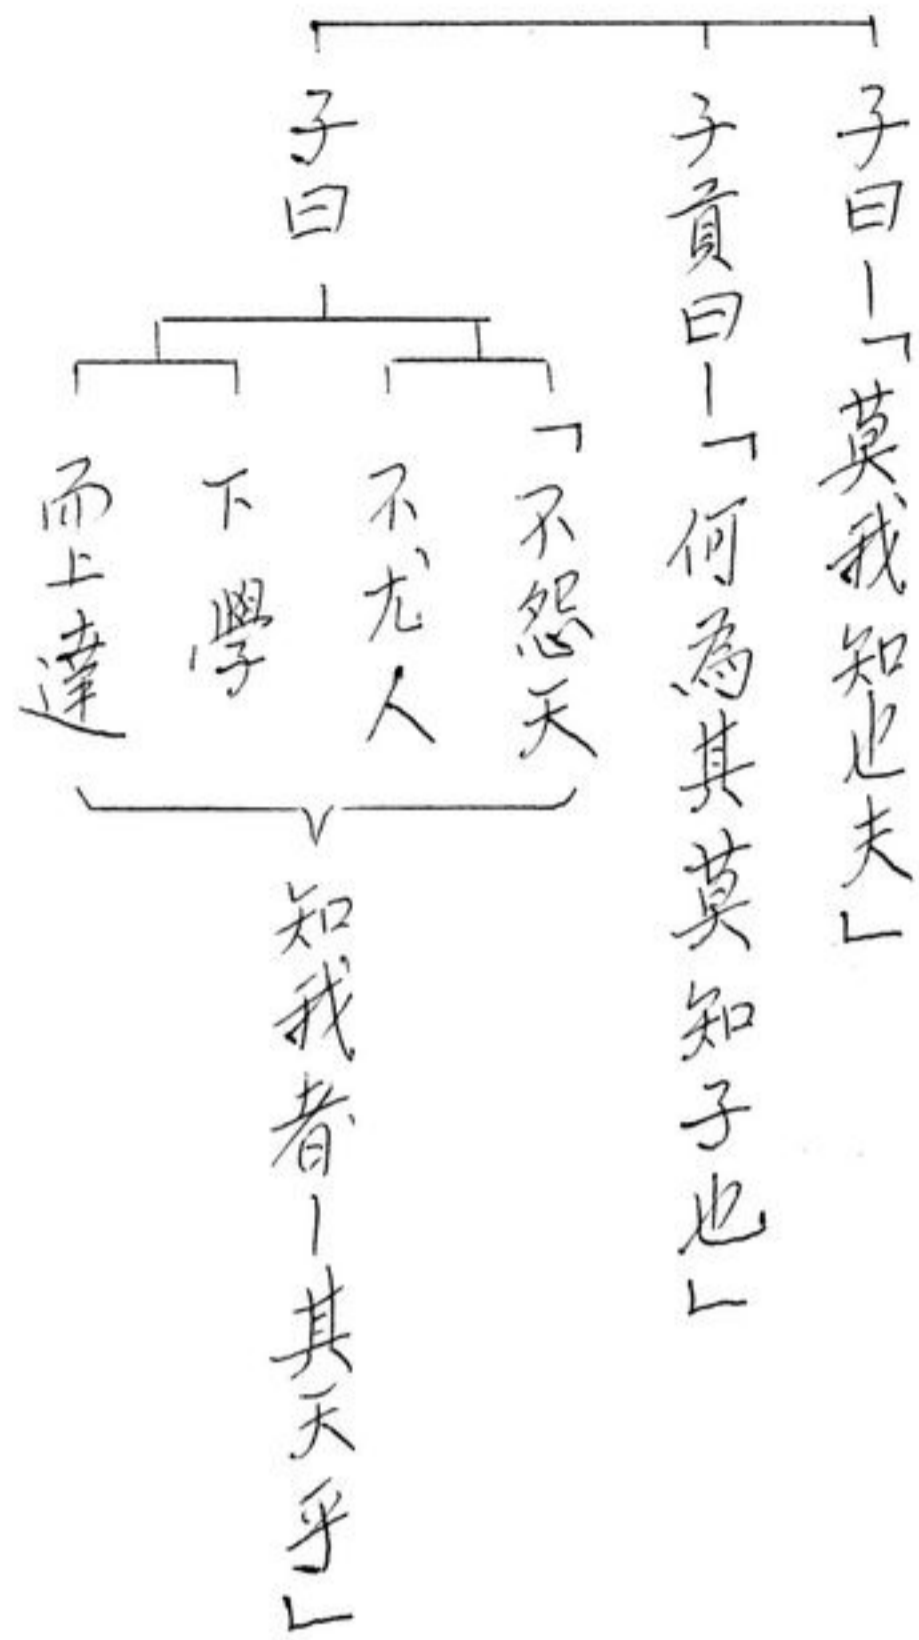 子曰－「莫我知也夫」
子貢曰－「何為其莫知子也」
子曰
「不怨天
不尤人
下學
而上達
知我者－其天乎」